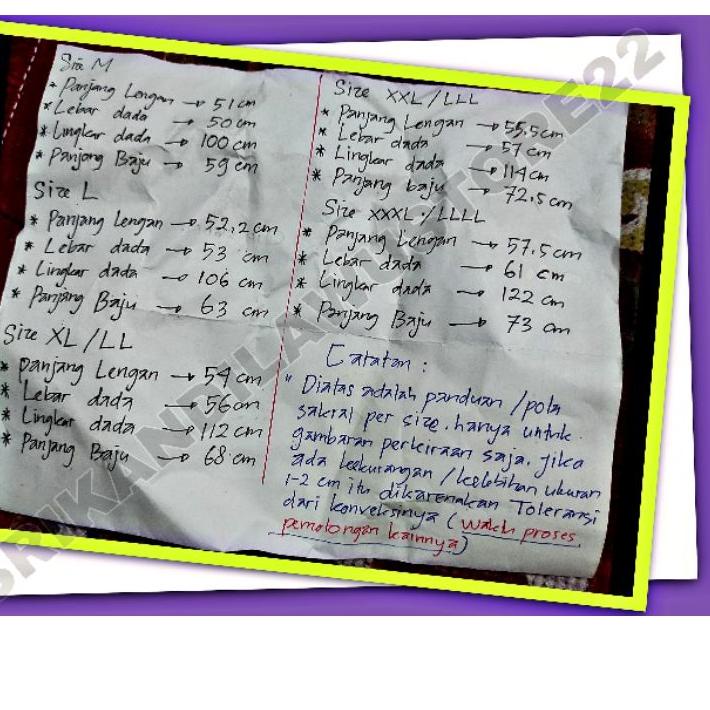 Size M
* Panjang Lengan → 51 cm
* Lebar dada → 50 cm
* Lingkar dada → 100 cm
* Panjang Baju → 59 cm
Size L
* Panjang Lengan → 52,2 cm
* Lebar dada → 53 cm
* Lingkar dada → 106 cm
* Panjang Baju → 63 cm
Size XL/LL
* Panjang Lengan → 54 cm
* Lebar dada → 56 cm
* Lingkar dada → 112 cm
* Panjang Baju → 68 cm
Size XXL/LLL
* Panjang Lengan → 55,5 cm
* Lebar dada → 57 cm
* Lingkar dada → 114 cm
* Panjang baju → 72,5 cm
Size XXXL/LLLL
* Panjang Lengan → 57,5 cm
* Lebar dada → 61 cm
* Lingkar dada → 122 cm
* Panjang Baju → 73 cm
Catatan :
" Diatas adalah panduan/pola
sakral per size. hanya untuk
gambaran perkiraan saja. jika
ada kekurangan/kelebihan ukuran
1-2 cm itu dikarenakan Toleransi
dari konveksinya (waktu proses
pemotongan kainnya)